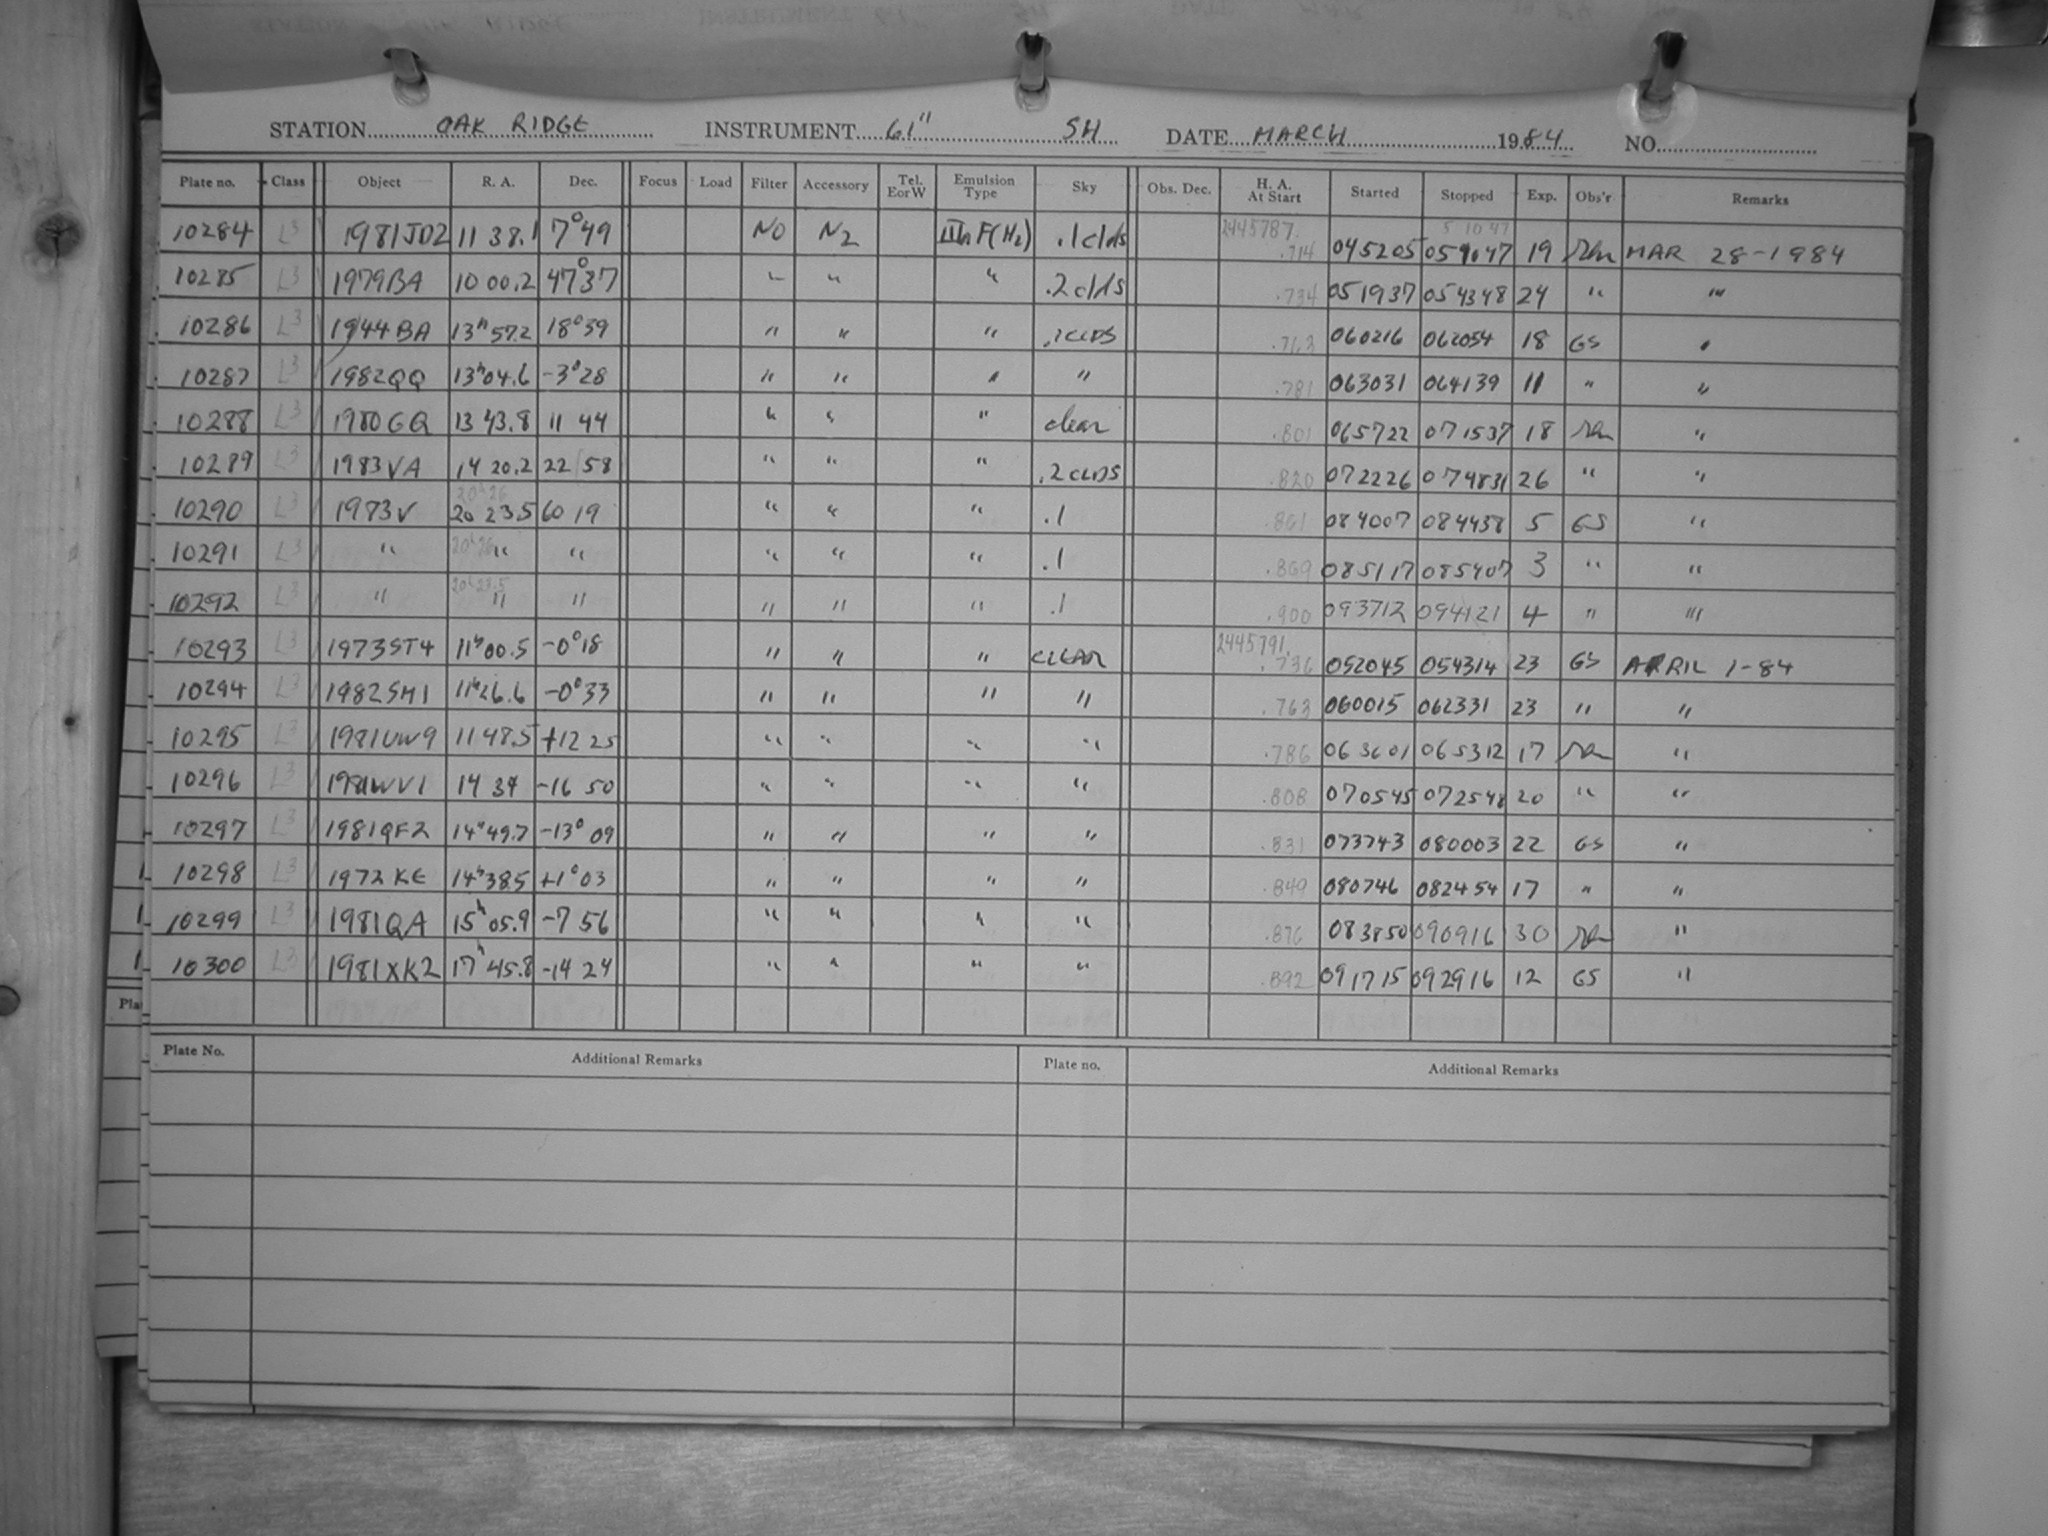 STATION OAK RIDGE INSTRUMENT 61" SH DATE MARCH 1984 NO.
Plate no. Class Object R. A. Dec. Focus Load Filter Accessory Tel. EorW Emulsion Type Sky Obs. Dec. H. A. At Start Started Stopped Exp. Obs'r Remarks
2445787. 5 10 47
10284 L3 1981JD2 11 38.1 7°49 NO N2 IIIaF(H2) .1clds .714 045205 051047 19 MAR 28-1984
10285 L3 1979BA 10 00.2 47°37 " " " .2clds .734 051937 054348 24 " "
10286 L3 1944BA 13h57.2 18°39 " " " .1CLDS .763 060216 062054 18 GS "
10287 L3 1982QQ 13h04.6 -3°28 " " " " .781 063031 064139 11 " "
10288 L3 1980GQ 13 43.8 11 44 " " " clear .801 065722 071537 18 "
10289 L3 1983VA 14 20.2 22 58 " " " .2CLDS .820 072226 074831 26 " "
20h26
10290 L3 1983V 20 23.5 60 19 " " " .1 .861 084007 084438 5 GS "
10291 L3 " 20h26 " " " " " .1 .869 085117 085407 3 " "
20h23.5
10292 L3 " " " " " " .1 .900 093712 094121 4 " "
2445791.
10293 L3 1973ST4 11h00.5 -0°18 " " " CLEAR .736 052045 054314 23 GS APRIL 1-84
10294 L3 1982SM1 11h26.6 -0°33 " " " " .763 060015 062331 23 " "
10295 L3 1981UW9 11 48.5 +12 25 " " " " .786 063601 065312 17 "
10296 L3 1981WV1 14 34 -16 50 " " " " .808 070545 072548 20 " "
10297 L3 1981QF2 14h49.7 -13°09 " " " " .831 073743 080003 22 GS "
10298 L3 1972KE 14h38.5 +1°03 " " " " .849 080746 082454 17 " "
10299 L3 1981QA 15h05.9 -7 56 " " " " .876 083850 090916 30 "
10300 L3 1981XK2 17h45.8 -14 24 " " " " .892 091715 092916 12 GS "
Pla
Plate No. Additional Remarks Plate no. Additional Remarks